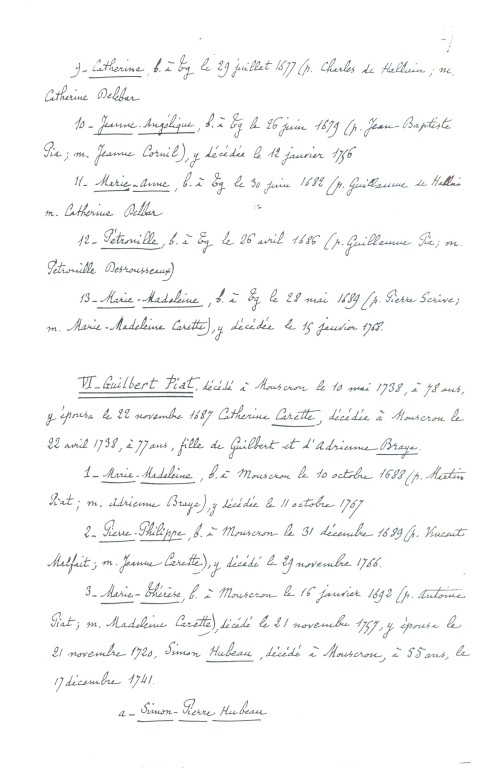 9- Catherine, b. à Tg le 29 juillet 1677 (p. Charles de Halluin ; m.
Catherine Delebar
10- Jeanne-Angélique, b. à Tg le 26 juin 1679 (p. Jean-Baptiste
Pia ; m. Jeanne Cornil), y décédée le 12 janvier 1756
11- Marie-Anne, b. à Tg le 30 juin 1682 (p. Guillaume de Halluin
m. Catherine Delbar
12- Pétronille, b. à Tg le 26 avril 1686 (p. Guillaume Pia ; m.
Pétronille Desrousseaux)
13- Marie-Madeleine, b. à Tg le 28 mai 1689 (p. Pierre Scrive ;
m. Marie-Madeleine Carette), y décédée le 15 janvier 1768.
VI- Guilbert Piat, décédé à Mouscron le 10 mai 1738, à 78 ans,
y épousa le 22 novembre 1687 Catherine Carette, décédée à Mouscron le
22 avril 1738, à 77 ans, fille de Guilbert et d'Adrienne Braye.
1- Marie-Madeleine, b. à Mouscron le 10 octobre 1688 (p. Martin
Piat ; m. Adrienne Braye), y décédée le 11 octobre 1767
2- Pierre-Philippe, b. à Mouscron le 31 décembre 1689 (p. Vincent
Malfait ; m. Jeanne Carette), y décédé le 29 novembre 1766.
3- Marie-Thérèse, b. à Mouscron le 16 janvier 1692 (p. Antoine
Piat ; m. Madeleine Carette), décédé le 21 novembre 1757, y épousa le
21 novembre 1720, Simon Hubeau, décédé à Mouscron, à 55 ans, le
17 décembre 1741.
a- Simon-Pierre Hubeau